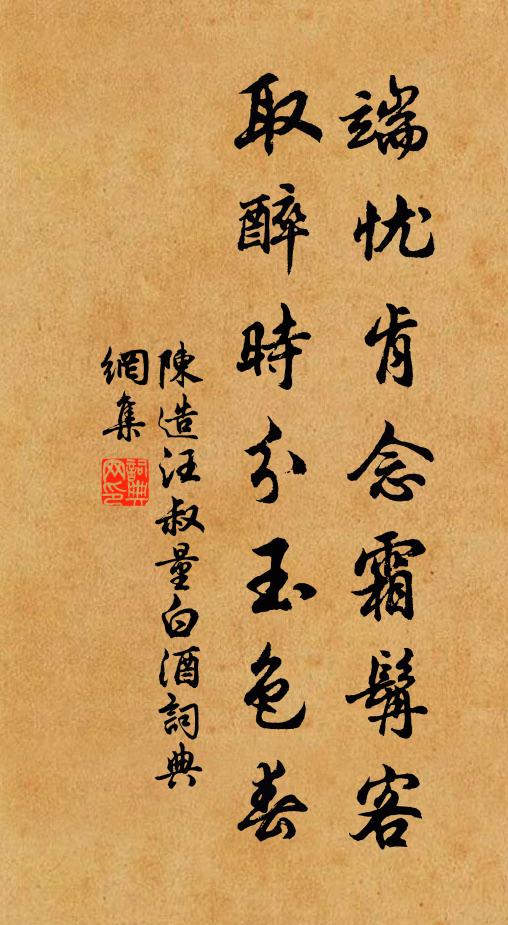 端忧肯念霜髯客
取醉時分玉色春
陳造汪叔量白酒詞典
網集
詞典
网印